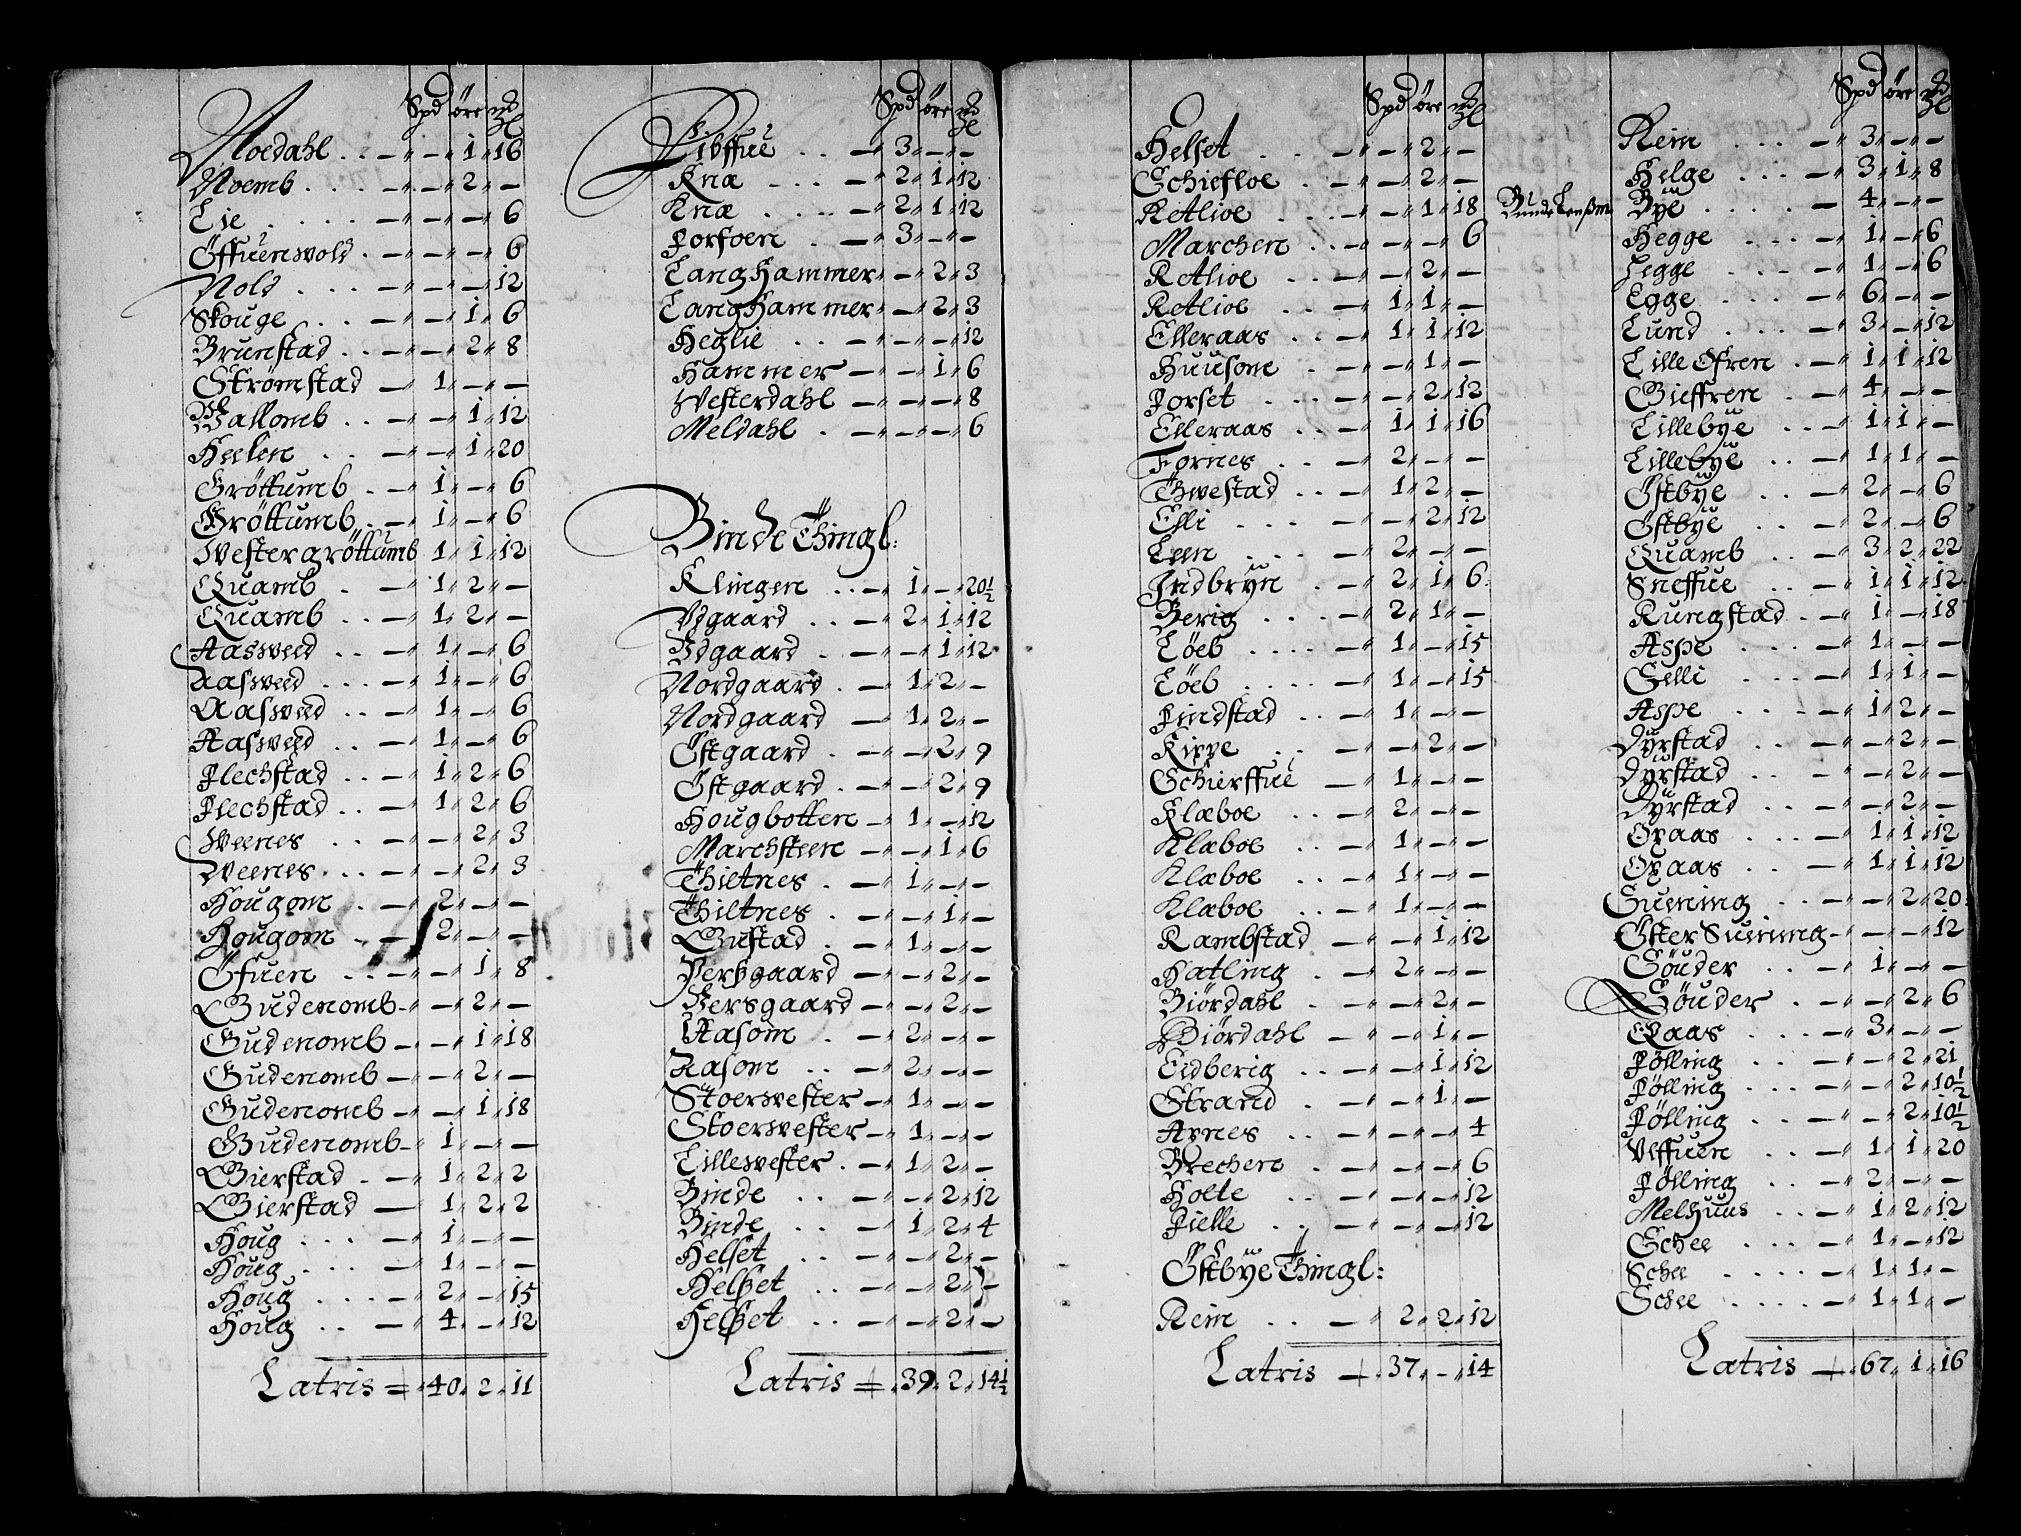 Spd öre mkl
Noedahl . . — „ — „ 1 „ 16
Noemb . . . — „ — „ 2 „ —
Lie . . . . — „ — „ — „ 6
Öffuenvold . — „ — „ — „ 6
Nold . . . — „ — „ — „ 12
Skouge . . — „ — „ 1 „ 6
Brunstad . . — „ — „ 2 „ 8
Strömstad — „ 1 „ — „ —
Wallomb . . — „ — „ 1 „ 12
Heelen . . — „ — „ 1 „ 20
Gröttumb . — „ 1 „ — „ 6
Gröttumb . — „ 1 „ — „ 6
Westergröttumb 1 „ 1 „ 12
Quamb . — „ 1 „ 2 „ —
Quamb . . — „ 1 „ 2 „ —
Aasveed . . — „ 1 „ — „ 6
Aasveed . . . — „ 1 „ — „ 6
Aasveed . . — „ 1 „ — „ 6
Aasveed . . — „ 1 „ — „ 6
Flechstad . — „ 1 „ 2 „ 6
Flechstad . . — „ 1 „ 2 „ 6
Weenes . . — „ — „ 2 „ 3
Weenes . . . — „ — „ 2 „ 3
Hougom . — „ 2 „ — „ —
Hougom . — „ 2 „ — „ —
Öfuen . . — „ — „ 1 „ 8
Gudenomb — „ — „ 2 „ —
Gudenomb — „ — „ 1 „ 18
Gudenomb — „ — „ 2 „ —
Gudenomb — „ — „ 1 „ 18
Gudenomb — „ 1 „ — „ —
Gierstad . — „ 1 „ 2 „ 2
Gierstad — 1 „ 2 „ 2
Houg . . . — „ 1 „ — „ —
Houg . . . — „ 1 „ — „ —
Houg . . . — „ 2 „ — „ 15
Houg . . — „ 4 „ — „ 12
Latris = „ 40 „ 2 „ 11
Spd öre mkl
Vibffue . . — „ 3 „ — „ —
Knæ . . . — „ 2 „ 1 „ 12
Knæ . . . — „ 2 „ 1 „ 12
Forfoen . — „ 3 „ — „ —
Langhammer „ — „ 2 „ 3
Langhammer „ — „ 2 „ 3
Heglie . . — „ — „ — „ 12
Hammer — „ — „ 1 „ 6
Westerdahl — „ — „ — „ 8
Meldahl . — „ — „ — „ 6
Binde Thingl:
Klingen . . — „ 1 „ — „ 20½
Vdgaard . . — „ 2 „ 1 „ 12
Vdgaard . — „ — „ 1 „ 12
Nordgaard . — „ 1 „ 2 „ —
Nordgaard — „ 1 „ 2 „ —
Östgaard . — „ — „ 2 „ 9
Östgaard . — „ — „ 2 „ 9
Hougbotten — „ 1 „ — „ 12
Marchsteen — „ — „ 1 „ 6
Thiltnes . — „ 1 „ — „ —
Thiltnes . — „ — „ 1 „ —
Gustad . — „ 1 „ — „ —
Versgaard — „ — „ 2 „ —
Versgaard — „ — „ 2 „ —
Aasom . — „ 2 „ — „ —
Aasom . . — „ 2 „ — „ —
Stoervester — „ 1 „ — „ —
Stoervester — „ 1 „ — „ —
Lillevester . — „ 1 „ 2 „ —
Binde . . — „ — „ 2 „ 12
Binde . . — „ 1 „ 2 „ 4
Helset . . — „ — „ 2 „ —
Helset . . — „ — „ 2 „ —
Helset . . — „ — „ 2 „ —
Latris = „ 39 „ 2 „ 14½
Spd öre mkl
Helset . . . — „ — „ 2 „ —
Schiefloe . — „ — „ 2 „ —
Retlioe . . — „ — „ 1 „ 18
Marchen . — „ — „ — „ 6
Retlioe . . — „ — „ 2 „ —
Retlioe . . — „ 1 „ 1 „ —
Elleraas . . — „ 1 „ 1 „ 12
Huusome . — „ — „ 1 „ —
Forset . . — „ — „ 2 „ 12
Elleraas . . — „ 1 „ 1 „ 16
Fornes . . — „ 2 „ — „ —
Thvestad . . — „ 1 „ 2 „ —
Elli . . . — „ — „ 2 „ 12
Leen . . . — „ 2 „ — „ —
Indbryn . — „ 2 „ 1 „ 6
Berig . . . — „ 2 „ 1 „ —
Löeb . . . . — „ 1 „ — „ 15
Löeb . . . . — „ 1 „ — „ 15
Findstad . . — „ 1 „ — „ —
Kippe . . — „ — „ 2 „ —
Schierffue — „ 1 „ — „ —
Klæboe . . — „ 2 „ — „ —
Klæboe . . — „ 1 „ — „ —
Klæboe . . — „ 1 „ — „ —
Klæboe . . — „ 1 „ — „ —
Rambstad — „ — „ 1 „ 12
Hatling . — „ 2 „ — „ —
Biördahl . — „ — „ 2 „ —
Biördahl — „ — „ 1 „ —
Eidberig . . — „ — „ 1 „ 12
Strand . — „ — „ 1 „ —
Avnes . . — „ — „ — „ 4
Brechen . — „ — „ — „ 6
Holte . . — „ — „ — „ 12
Fielle . . — „ — „ — „ 12
Östbye Thingl:
Rein . . — „ 2 „ 2 „ 12
Latris + „ 37 „ — „ 14
Spd öre mkl
Rein . . . — „ 3 „ — „ —
Helge . . . — „ 3 „ 1 „ 8
Bundelensm. Bye . . . . — 4 „ — „ —
Hegge . . . — „ 1 „ — „ 6
Hegge . . . — „ 1 „ — „ 6
Egge . . . — „ 6 „ — „ —
Lund . . . — „ 3 „ — „ 12
Lille Ofren . — „ 1 „ 1 „ 12
Gieffren . — „ 4 „ — „ —
Lillebye . . — „ 1 „ 1 „ —
Lillebye . . — „ 1 „ 1 „ —
Östbye . . — „ 2 „ — „ 6
Östbye . . — „ 2 „ — „ 6
Quamb . . — „ 3 „ 2 „ 22
Sneffue . . — „ 1 „ 1 „ 12
Rungstad . . — „ 1 „ — „ 18
Aspe . . . — „ 1 „ — „ —
Selli . . . — „ 1 „ 1 „ —
Aspe . . . — „ 1 „ 2 „ —
Dyrstad . . — „ — „ 2 „ —
Dyrstad . . — „ — „ 2 „ —
Dyrstad . . — „ — „ 2 „ —
Qvaas . . . — „ 1 „ 1 „ 12
Qvaas . . . — „ 1 „ 1 „ 12
Suening . . — „ — „ 2 „ 20
Öster Suening — „ — „ — „ 12
Söuder . . — „ 1 „ — „ —
Söuder . — „ — „ 2 „ 6
Qvaas . . . — „ 3 „ — „ —
Fölling . . — „ — „ 2 „ 21
Fölling . . . — „ — „ 2 „ 10½
Fölling . . . — „ — „ 2 „ 10½
Vlffuen . . — „ 1 „ 1 „ 20
Fölling . . — „ 2 „ — „ —
Melhuus . . — „ 1 „ 2 „ 12
Schee . . . . — „ 1 „ — „ 12
Schee . . . . — „ 1 „ 1 „ —
Schee . . . . — „ 1 „ 1 „ —
Latris + „ 67 „ 1 „ 16